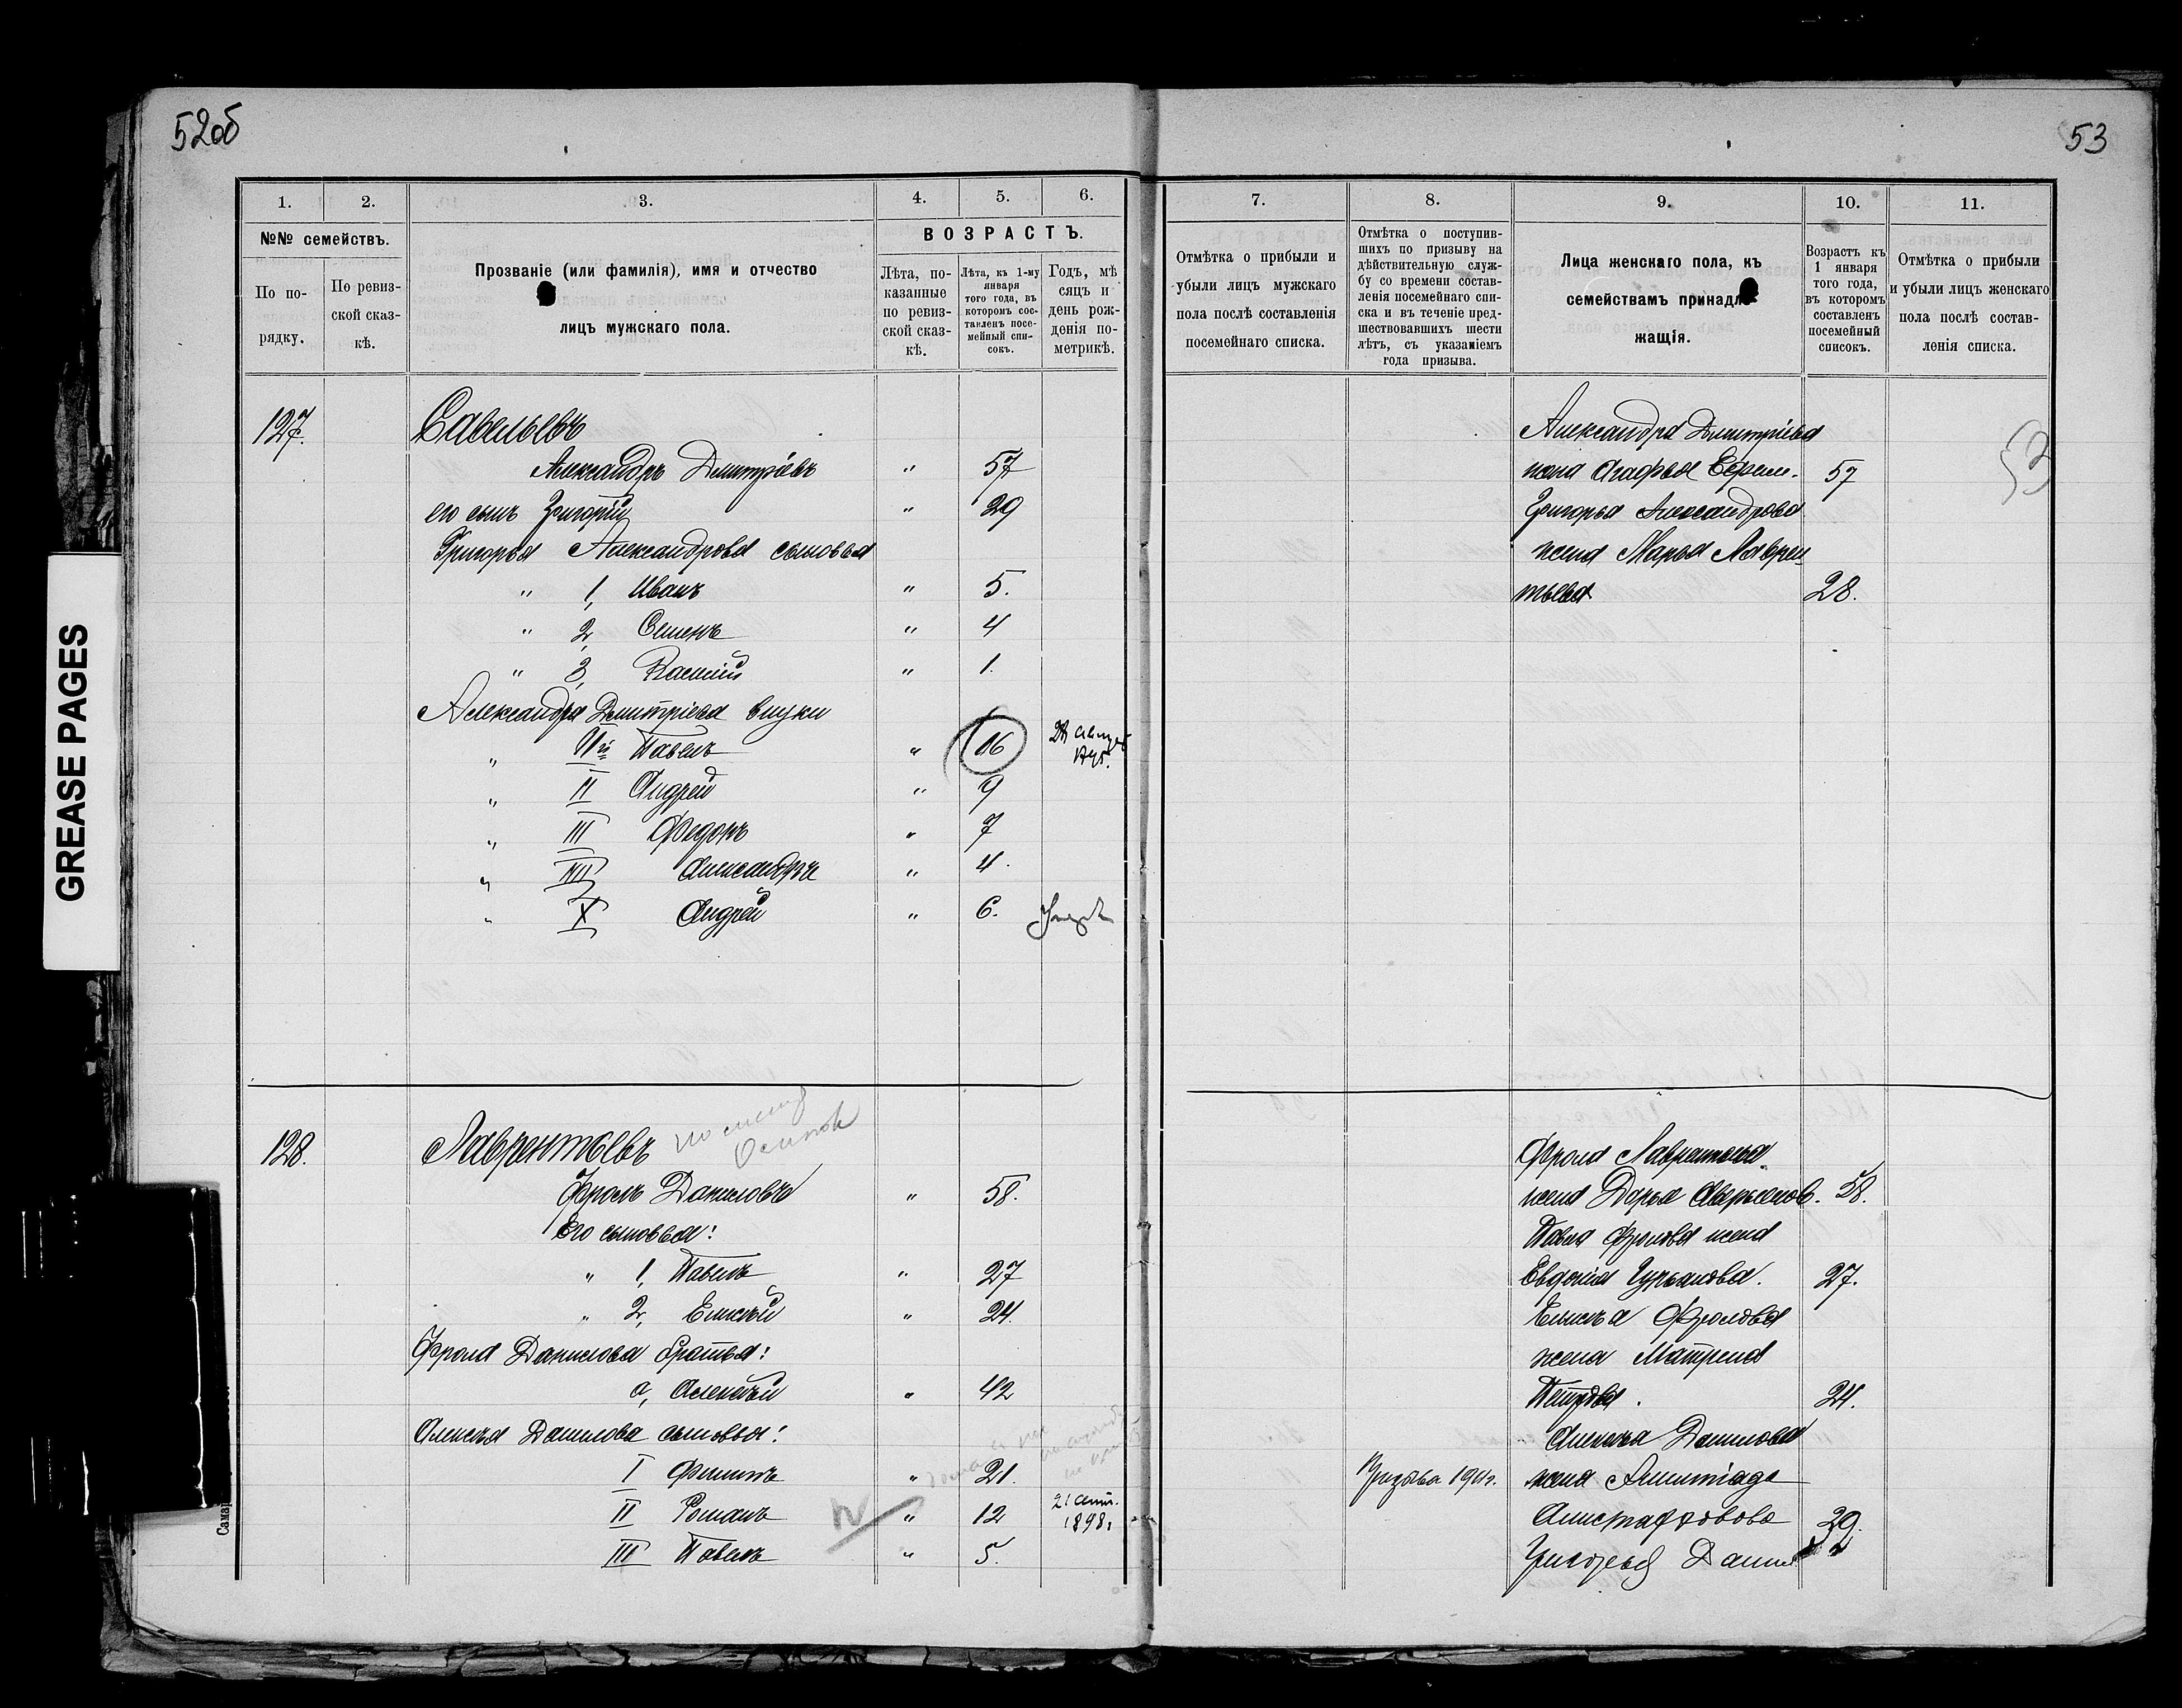 52об
53
GREASE PAGES
1.
2.
3.
4.
5.
6.
№№ семействъ.
По по-
рядку.
По ревиз-
ской сказ-
кѣ.
Прозваніе (или фамилія), имя и отчество
лицъ мужскаго пола.
ВОЗРАСТЪ.
Лѣта, по-
казанные
по ревиз-
ской сказ-
кѣ.
Лѣта, къ 1-му
января
того года, въ
которомъ сос-
тавленъ посе-
мейный спи-
сокъ.
Годъ, мѣ
сяцъ и
день рож-
денія по-
метрикѣ.
127.
Савельевъ
Александръ Дмитріевъ " 57
его сынъ Григорій " 29
Григорья Александрова сыновья
" 1, Иванъ " 5.
" 2, Семенъ " 4
" 3, Василій " 1.
Александра Дмитріева внуки
" Павелъ " 16
" II Андрей " 9
" III Федоръ " 7
" IIII Александръ " 4.
" V Андрей " 6.
128.
Лаврентьевъ
Фролъ Даниловъ " 58.
Его сыновья:
" 1, Павелъ " 27
" 2, Елисѣй " 24.
Фрола Данилова братья:
а, Алексѣй " 42
Алексѣя Данилова сыновья:
I Филипъ " 21.
II Романъ " 12 21 сент. 1898.
III Павелъ " 5.
7.
8.
9.
10.
11.
Отмѣтка о прибыли и
убыли лицъ мужскаго
пола послѣ составленія
посемейнаго списка.
Отмѣтка о поступив-
шихъ по призыву на
дѣйствительную служ-
бу со времени состав-
ленія посемейнаго спи-
ска и въ теченіе пред-
шествовавшихъ шести
лѣтъ, съ указаніемъ
года призыва.
Лица женскаго пола, къ
семействамъ принадле-
жащія.
Возрастъ къ
1 января
того года,
въ которомъ
составленъ
посемейный
списокъ.
Отмѣтка о прибыли
и убыли лицъ женскаго
пола послѣ состав-
ленія списка.
Александра Дмитріева
жена Агафья Ефим. 57
Григорья Александрова
жена Марья Лаврен-
тьева 28.
53
Фрола Лаврентьева
жена Дарья Аверьянов. 58.
Павла Фролова жена
Евдокія Гурьянова. 27.
Елисѣя Фролова
жена Матрена
Петрова. 24.
Алексѣя Данилова
жена
39.
Григорья Данил